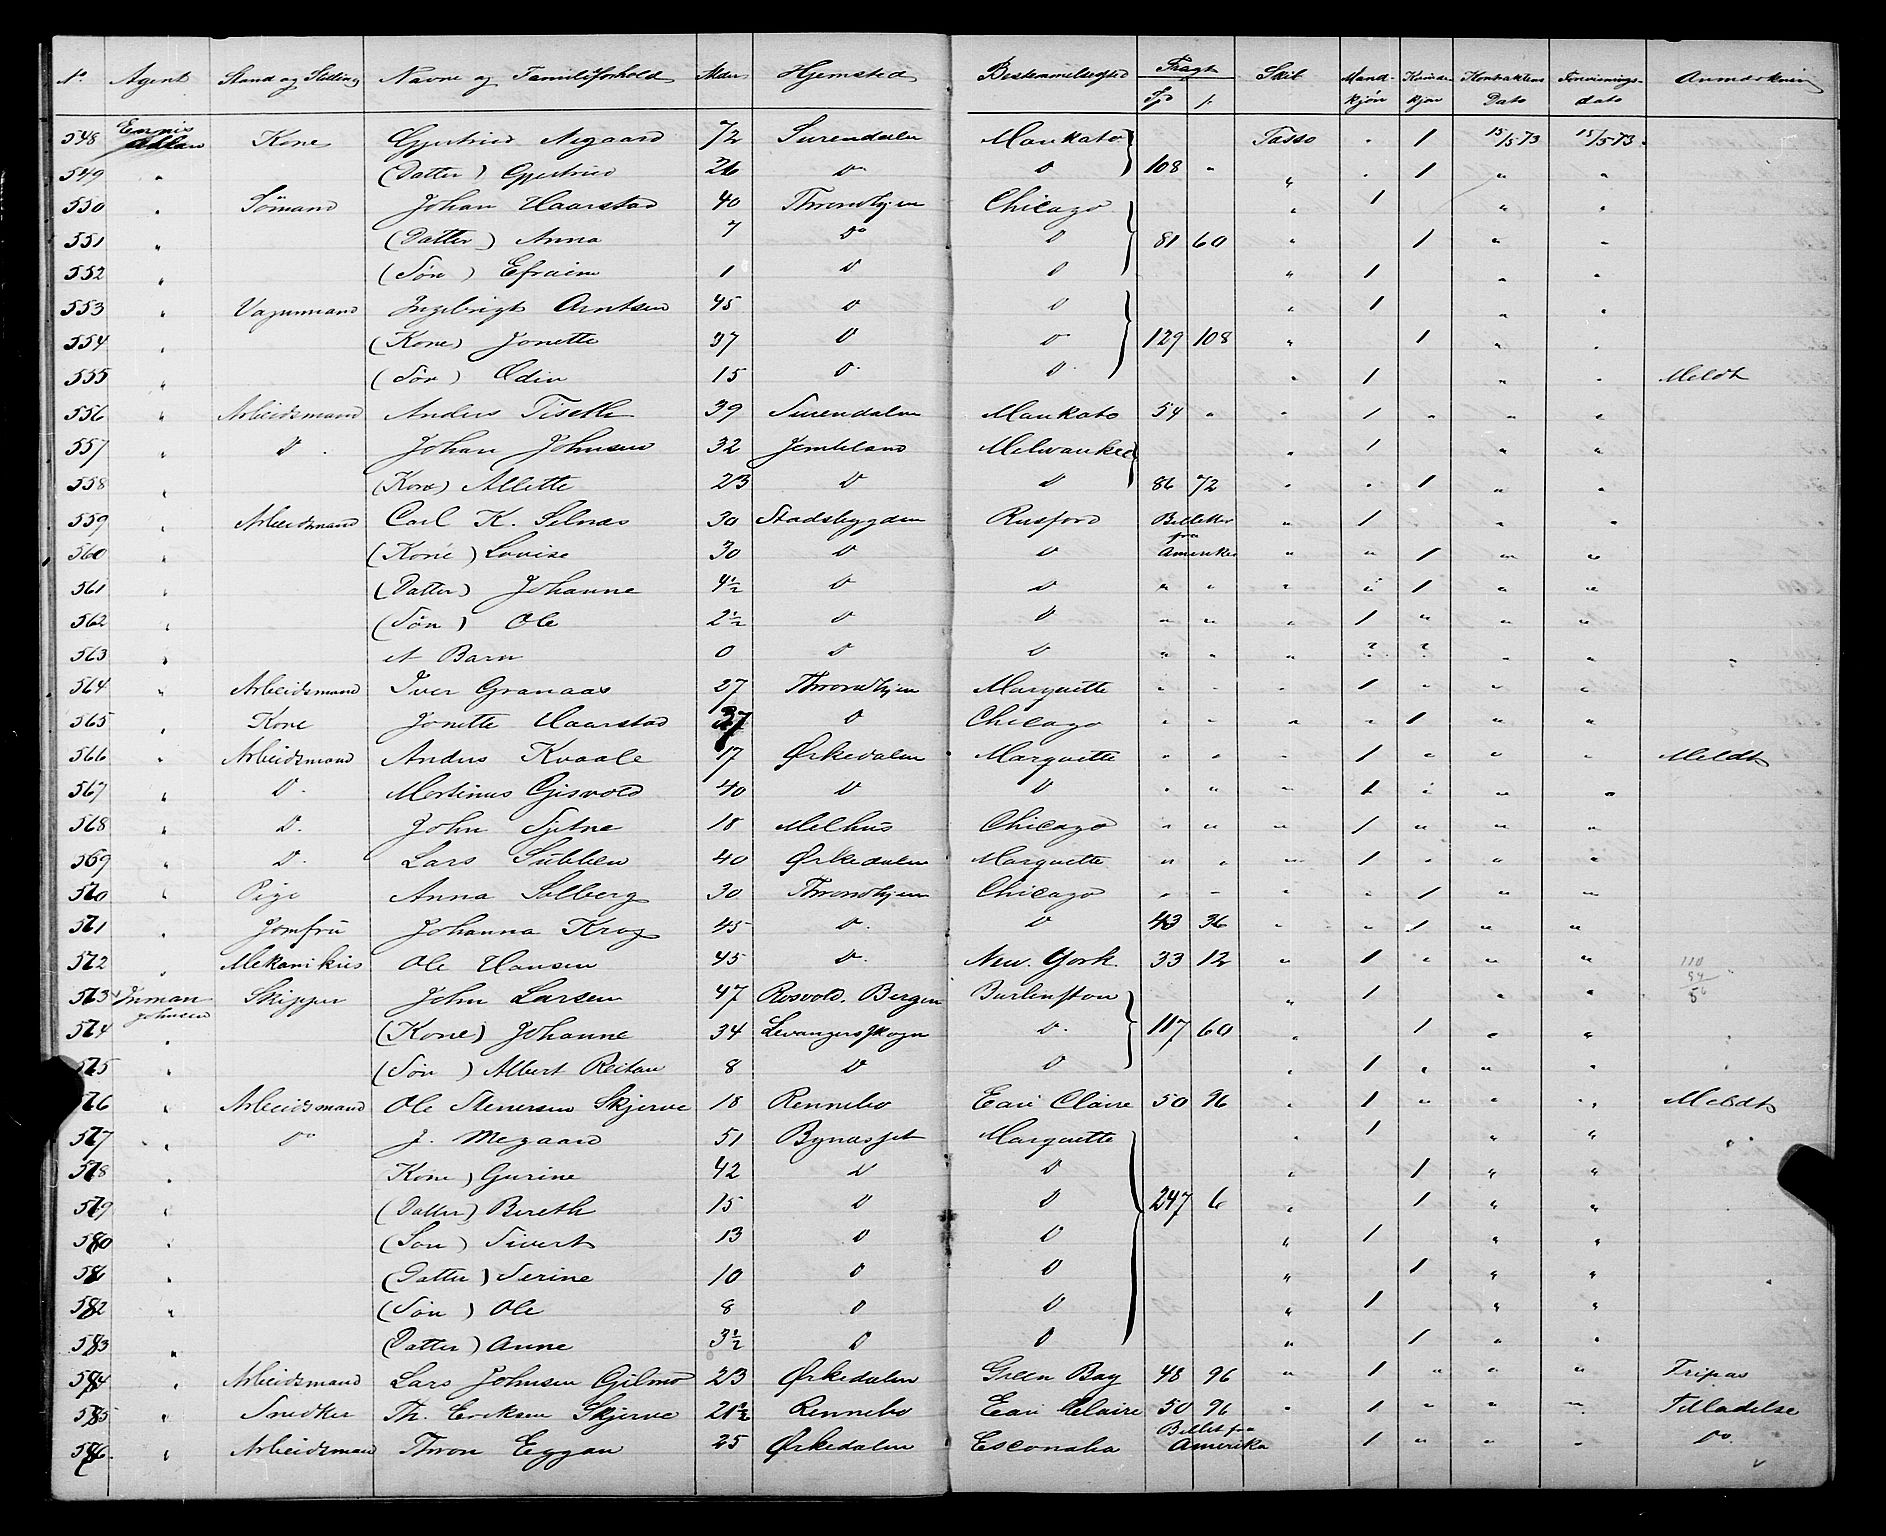 No Agent Stand og Stilling Navne og Familieforhold Alder Hjemsted Bestemmelsessted Fragt Skib Mand- Kvinde- Kontraktens Forevisnings-
Spd ß kjøn kjøn Dato dato
548 Kone Gjertrud 72 Surendalen Mankato Tasso " 1 15/5 73 15/5 73
549 " (Datter) Gjertrud 26 Do Do 108 " " " 1 " "
550 " Sømand Johan Haarstad 40 Throndhjem Chicago " 1 " "
551 " (Datter) Anna 7 Do Do 81 60 " 1 " "
552 " (Søn) Efraim 1 Do Do " 1 " "
553 " Vognmand Ingebrigt Arntsen 45 Do Do " 1 " "
554 " (Kone) Jonette 37 Do Do 129 108 " 1 " "
555 " (Søn) Odin 15 Do Do " 1 " " Meldt
556 " Arbeidsmand Anders Tiseth 39 Surendalen Mankato 54 " " 1 " " "
557 " Do Johan Johnsen 32 Jemteland Milwaukee " 1 " "
558 " (Kone) Allette 23 Do Do 86 72 " " 1 " "
559 " Arbeidsmand Carl K. Selnæs 30 Stadsbygden Rusford Billetter " 1 " "
fra
560 " (Kone) Lovise 30 Do Do Amerika " " 1 " "
561 " (Datter) Johanne 4½ Do Do " " " " 1 " "
562 " (Søn) Ole 2½ Do Do " " " 1 " " "
563 " et Barn 0 Do Do " " " ? ? " "
564 " Arbeidsmand Iver Granaas 27 Throndhjem Marquette " " " 1 " " "
565 " Kone Jonette Haarstad 37 Do Chicago " " " " 1 " "
566 " Arbeidsmand Anders Kvaale 17 Ørkedalen Marquette " " " 1 " " " Meldt
567 " Do Mortinus Gisvold 40 Do Do " " " 1 " " "
568 " Do John 18 Melhus Chicago " " " 1 " " "
569 " Do Lars Subben 40 Ørkedalen Marquette " " " 1 " " "
570 " Pige Anna Solberg 30 Throndhjem Chicago " " " " 1 " "
571 " Jomfru Johanna Krog 45 Do Do 43 36 " " 1 " "
572 " Mekanikus Ole Hansen 45 Do New York 33 12 " 1 " " "
573 Inman Skipper John Larsen 47 Rosvold. Bergen Burlington " 1 " "
Johnsen
574 " (Kone) Johanne 34 Levangerskogn Do 117 60 " 1 " "
575 " (Søn) Albert Reitan 8 Do Do " 1 " " "
576 " Arbeidsmand Ole Stenersen Skjerve 18 Rennebo Eau Claire 50 96 " 1 " " " Meldt
577 " Do J. Megaard 51 Bynæsset Marquette " 1 " "
578 " Kone) Gurine 42 Do Do " 1 " "
579 " (Datter) Bereth 15 Do Do 247 6 " 1 " "
580 " (Søn) Sivert 13 Do Do " 1 " "
581 " (Datter) Serine 10 Do Do " 1 " "
582 " (Søn) Ole 8 Do Do " 1 " "
583 " (Datter) Anne 3½ Do Do " 1 " "
584 " Arbeidsmand Lars Johnsen Gilmo 23 Ørkedalen Green Bay 48 96 " 1 " " " Fripas
585 " Snedker Th. Eriksen Skjerve 21½ Rennebo Eau Claire 50 96 " 1 " " " Tilladelse
Billet fra
586 " Arbeidsmand Thron Eggan 25 Ørkedalen Esconaba Amerika 1 " " " Do